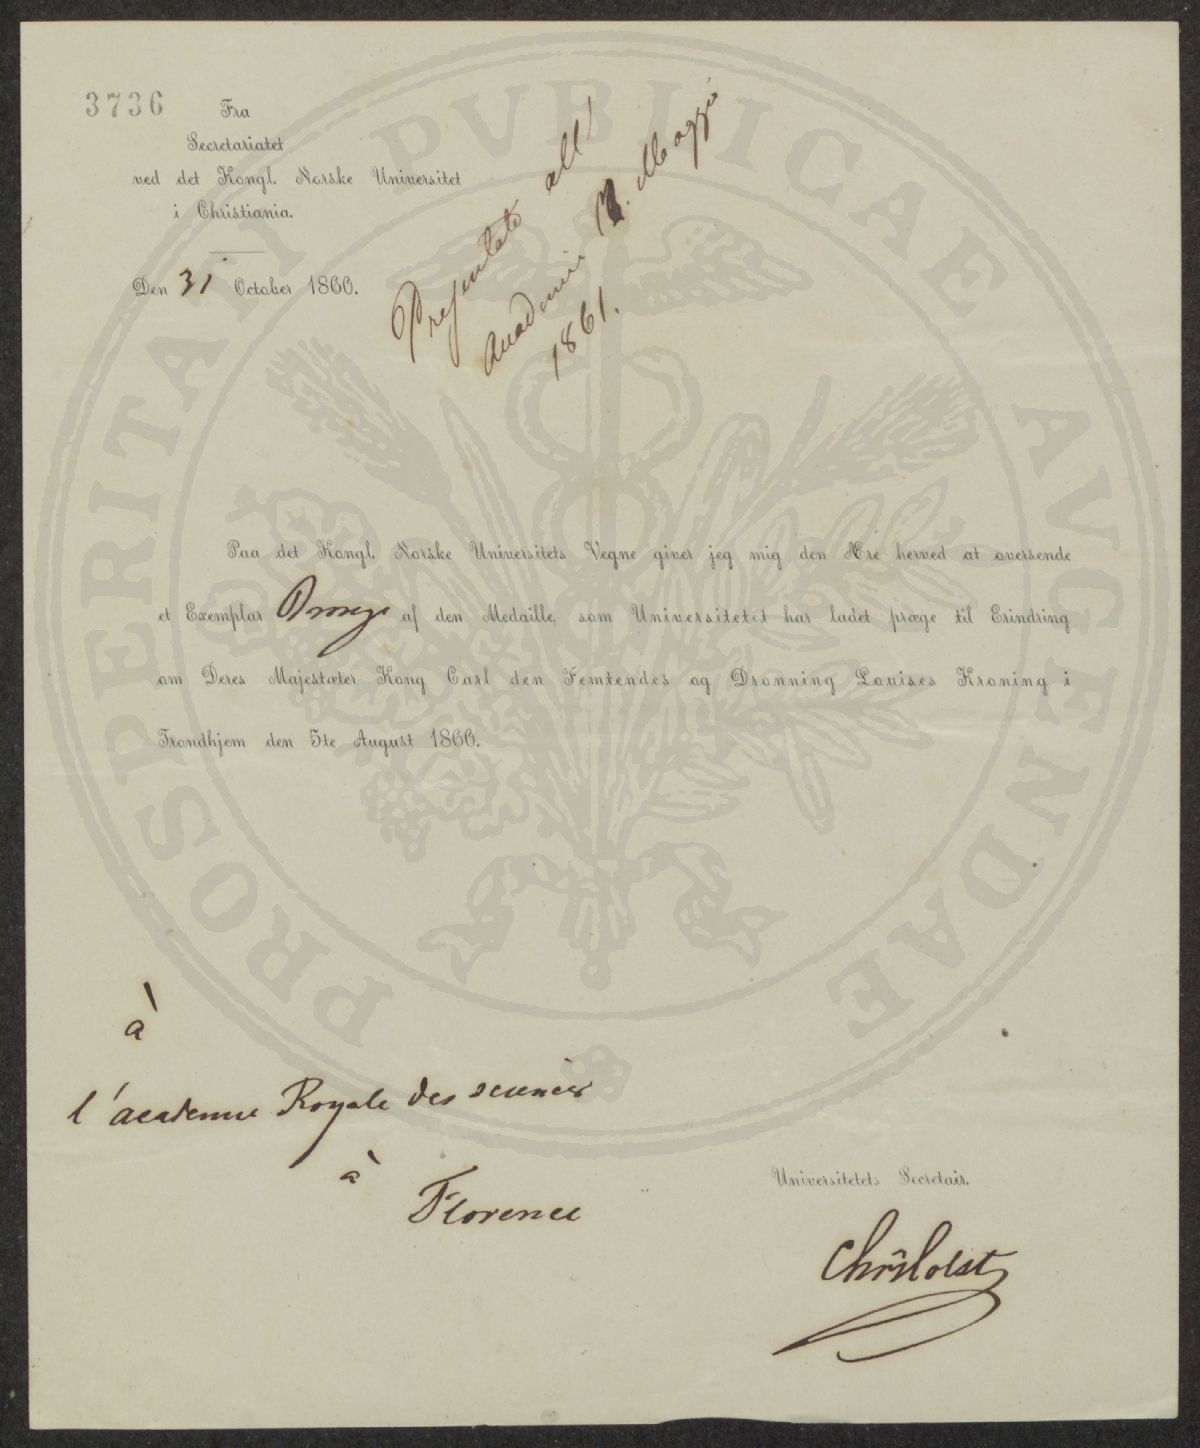 3736
Fra
Secretariatet
ved det Kongl. Norske Universitet
i Christiania.
Den 31 October 1860.
Presentata all'
Accademia Maggio
1861.
Paa det Kongl. Norske Universitets Vegne giver jeg mig den Ære herved at oversende
et Exemplar Bronze af den Medaille, som Universitetet har ladet præge til Erindring
om Deres Majestæter Kong Carl den Femtendes og Dronning Louises Kroning i
Trondhjem den 5te August 1860.
à
l'academie Royale des sciences
à
Florence
Universitetets Secretair.
Chr. Holst
PROSPERITATI PVBLICAE AVGENDAE